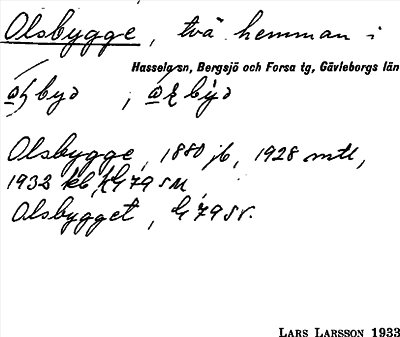 Olsbygge, två hemman i
Hassela sn, Bergsjö och Forsa tg, Gävleborgs län
Olsbygge, 1880 jb, 1928 mtl,
1932 kb, G 79 SU
Olsbygget, G 79 sv.
LARS LARSSON 1933